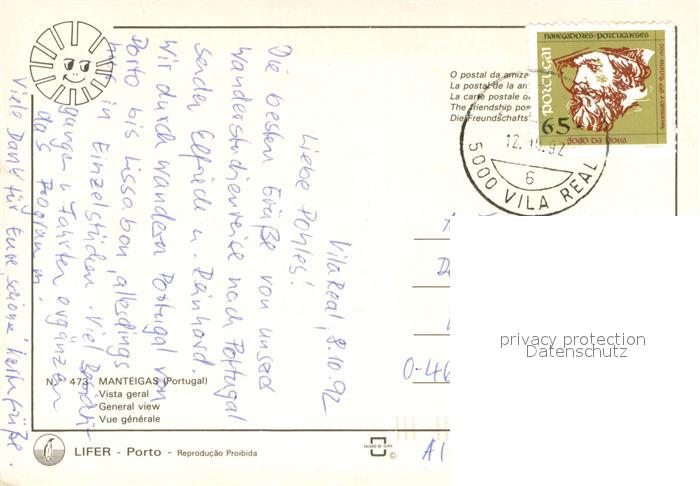 Vila Real, 8.10.92
Liebe Pohles!
Die besten Grüße von unser
Wanderstudienreise nach Portugal
senden Elfriede u. Reinhard.
Wir durchwandern Portugal von
Porto bis Lissabon, allerdings
nur in Einzelstücken. Viel
u. Fahrten ergänzen
das Programm.
Viele Dank für Eure schöne
O postal da amiza
La postal de la am
La carte postale d
The friendship pos
Die Freundschafts
NAVEGADORES PORTUGUESES
PORTUGAL
65
JOÃO DA NOVA
12. 92
6
5000 VILA REAL
privacy protection
Datenschutz
O-46
Al
N.º 473 MANTEIGAS (Portugal)
Vista geral
General view
Vue générale
LIFER - Porto - Reprodução Proibida
©